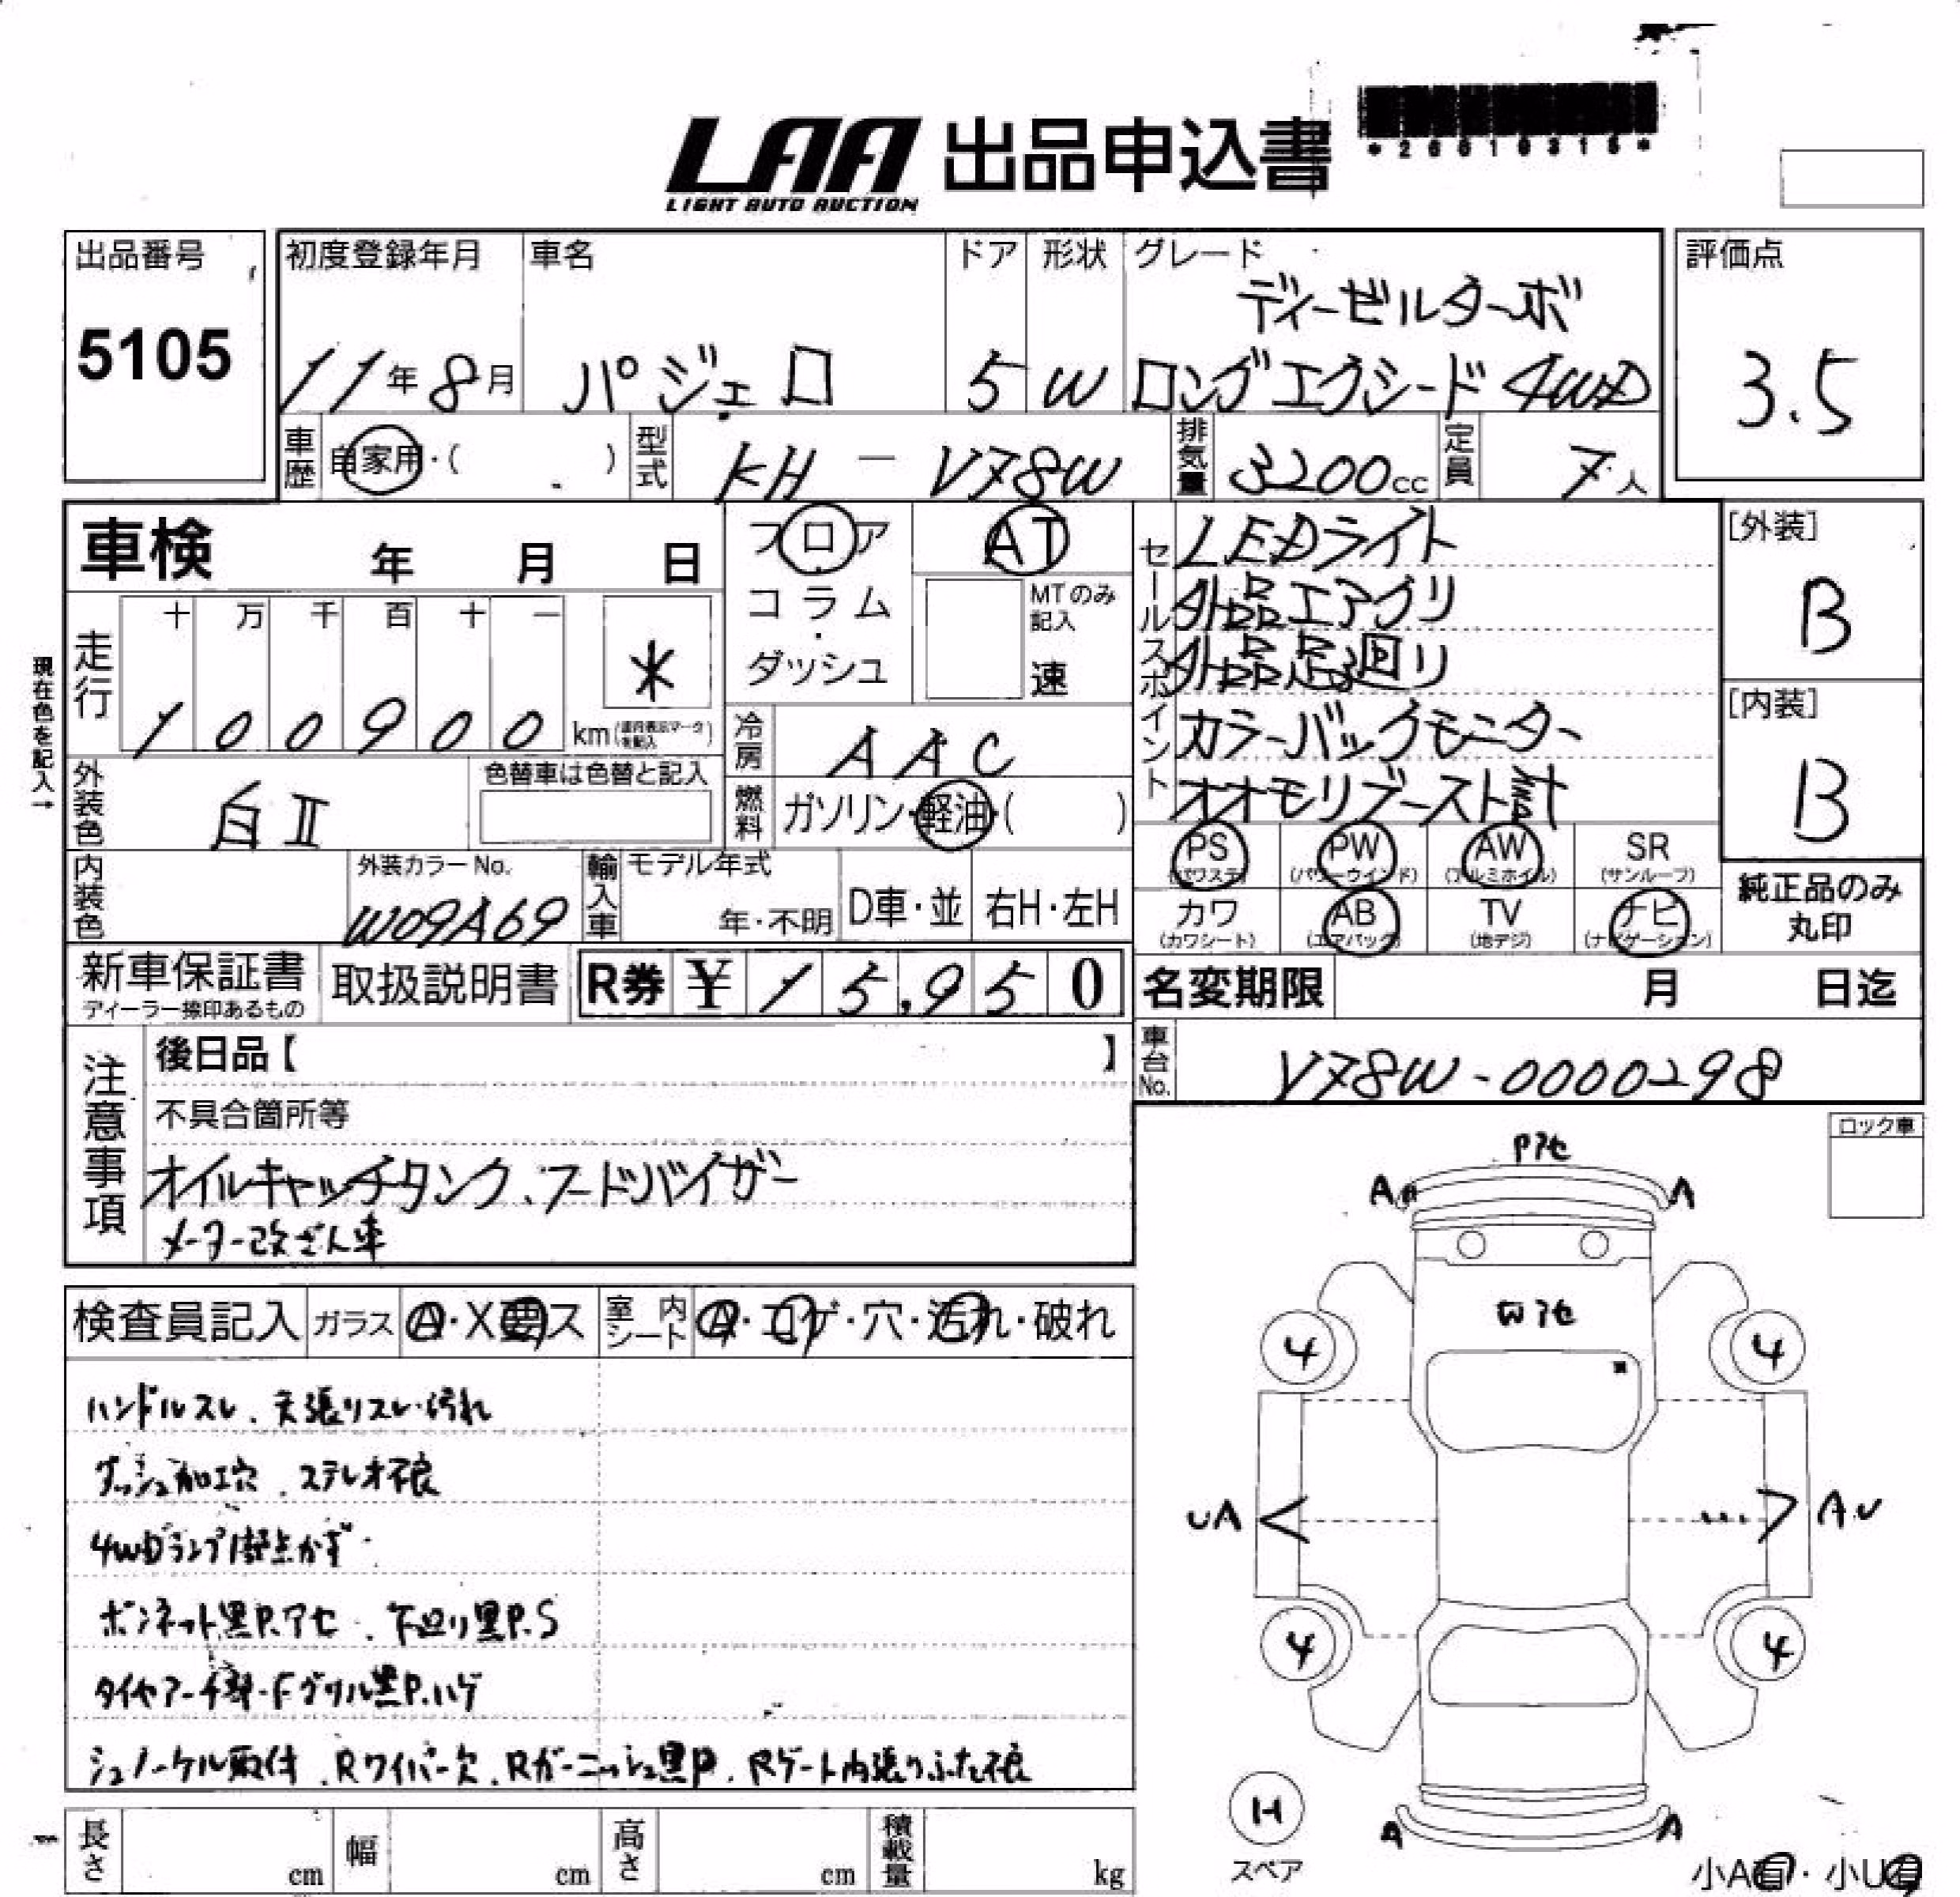 LAA 出品申込書
LIGHT AUTO AUCTION
出品番号
5105
初度登録年月 車名 ドア 形状 グレード
11年8月 パジェロ 5 W ディーゼルターボ
ロングエクシード 4WD
評価点
3.5
車歴 自家用・( ) 型式 KH - V78W 排気量 3200cc 定員 7人
車検 年 月 日
フロア
コラム
ダッシュ
AT
MTのみ記入
速
セールスポイント
LEDライト
外品エアクリ
外品足回り
カラーバックモニター
オオモリブースト計
[外装]
B
[内装]
B
現在色を記入→
走行 十 万 千 百 十 一
100900 km *
冷房 AAC
外装色 白II 色替車は色替と記入
燃料 ガソリン・軽油・( )
PS PW AW SR
(パワステ) (パワーウインド) (アルミホイル) (サンルーフ)
カワ AB TV ナビ
(カワシート) (エアバック) (地デジ) (ナビゲーション)
純正品のみ
丸印
内装色 外装カラーNo. W09A69
輸入車 モデル年式 年・不明 D車・並 右H・左H
新車保証書 取扱説明書 R券 ¥15,950
ディーラー捺印あるもの
名変期限 月 日迄
車台No. V78W-0000298
注意事項
後日品【 】
不具合箇所等
オイルキャッチタンク、フードバイザー
メーター改ざん車
ロック車
検査員記入 ガラス A・X要ス 室内シート A・コゲ・穴・汚れ・破れ
ハンドルスレ、天張りスレ・汚れ
ダッシュ加工穴、ステレオ不良
4WDランプ1部点かず
ボンネット黒P.アセ、下廻り黒P.S
タイヤアーチ部・Fグリル黒P.ハゲ
シュノーケル取付、Rワイパー欠、Rガーニッシュ黒P、Rゲート内張りふた不良
Pアセ
A A
アセ
4 4
UA AU
4 4
H
スペア
A A
小A有・小U有
長さ cm 幅 cm 高さ cm 積載量 kg